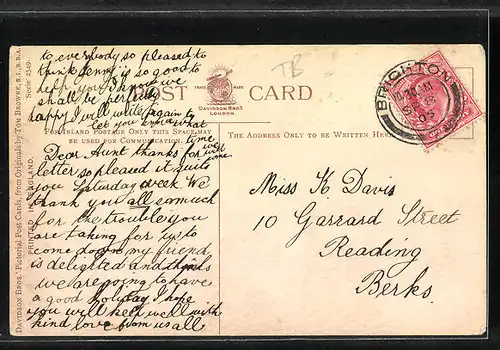 to everybody so pleased to
think Jenny is so good to
help you I know we
shall be perfectly
happy I will write again to
let you know what
time we
will come
TB
POST CARD
TRADE MARK
DAVIDSON BROS
LONDON.
FOR INLAND POSTAGE ONLY THIS SPACE MAY
BE USED FOR COMMUNICATION.
THE ADDRESS ONLY TO BE WRITTEN HERE
BRIGHTON
10.30 AM
05
Dear Aunt thanks for
letter so pleased it suits
you Saturday week. We
thank you all so much
for the trouble you
are taking for us to
come down my friend
is delighted and thinks
we are going to have
a good holiday I hope
you will keep well with
kind love from us all
Miss K Davis
10 Garrard Street
Reading
Berks.
DAVIDSON BROS.' Pictorial Post Cards, from Originals by TOM BROWNE, R.I., R.B.A. Series 2549.
PRINTED IN ENGLAND.